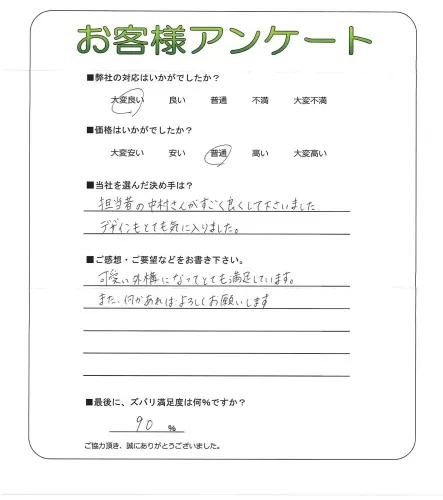 お客様アンケート
■弊社の対応はいかがでしたか？
大変良い 良い 普通 不満 大変不満
■価格はいかがでしたか？
大変安い 安い 普通 高い 大変高い
■当社を選んだ決め手は？
担当者の中村さんがすごく良くして下さいました
デザインもとても気に入りました。
■ご感想・ご要望などをお書き下さい。
可愛い外構になってとても満足しています。
また、何かあれば よろしくお願いします
■最後に、ズバリ満足度は何%ですか？
90 %
ご協力頂き、誠にありがとうございました。